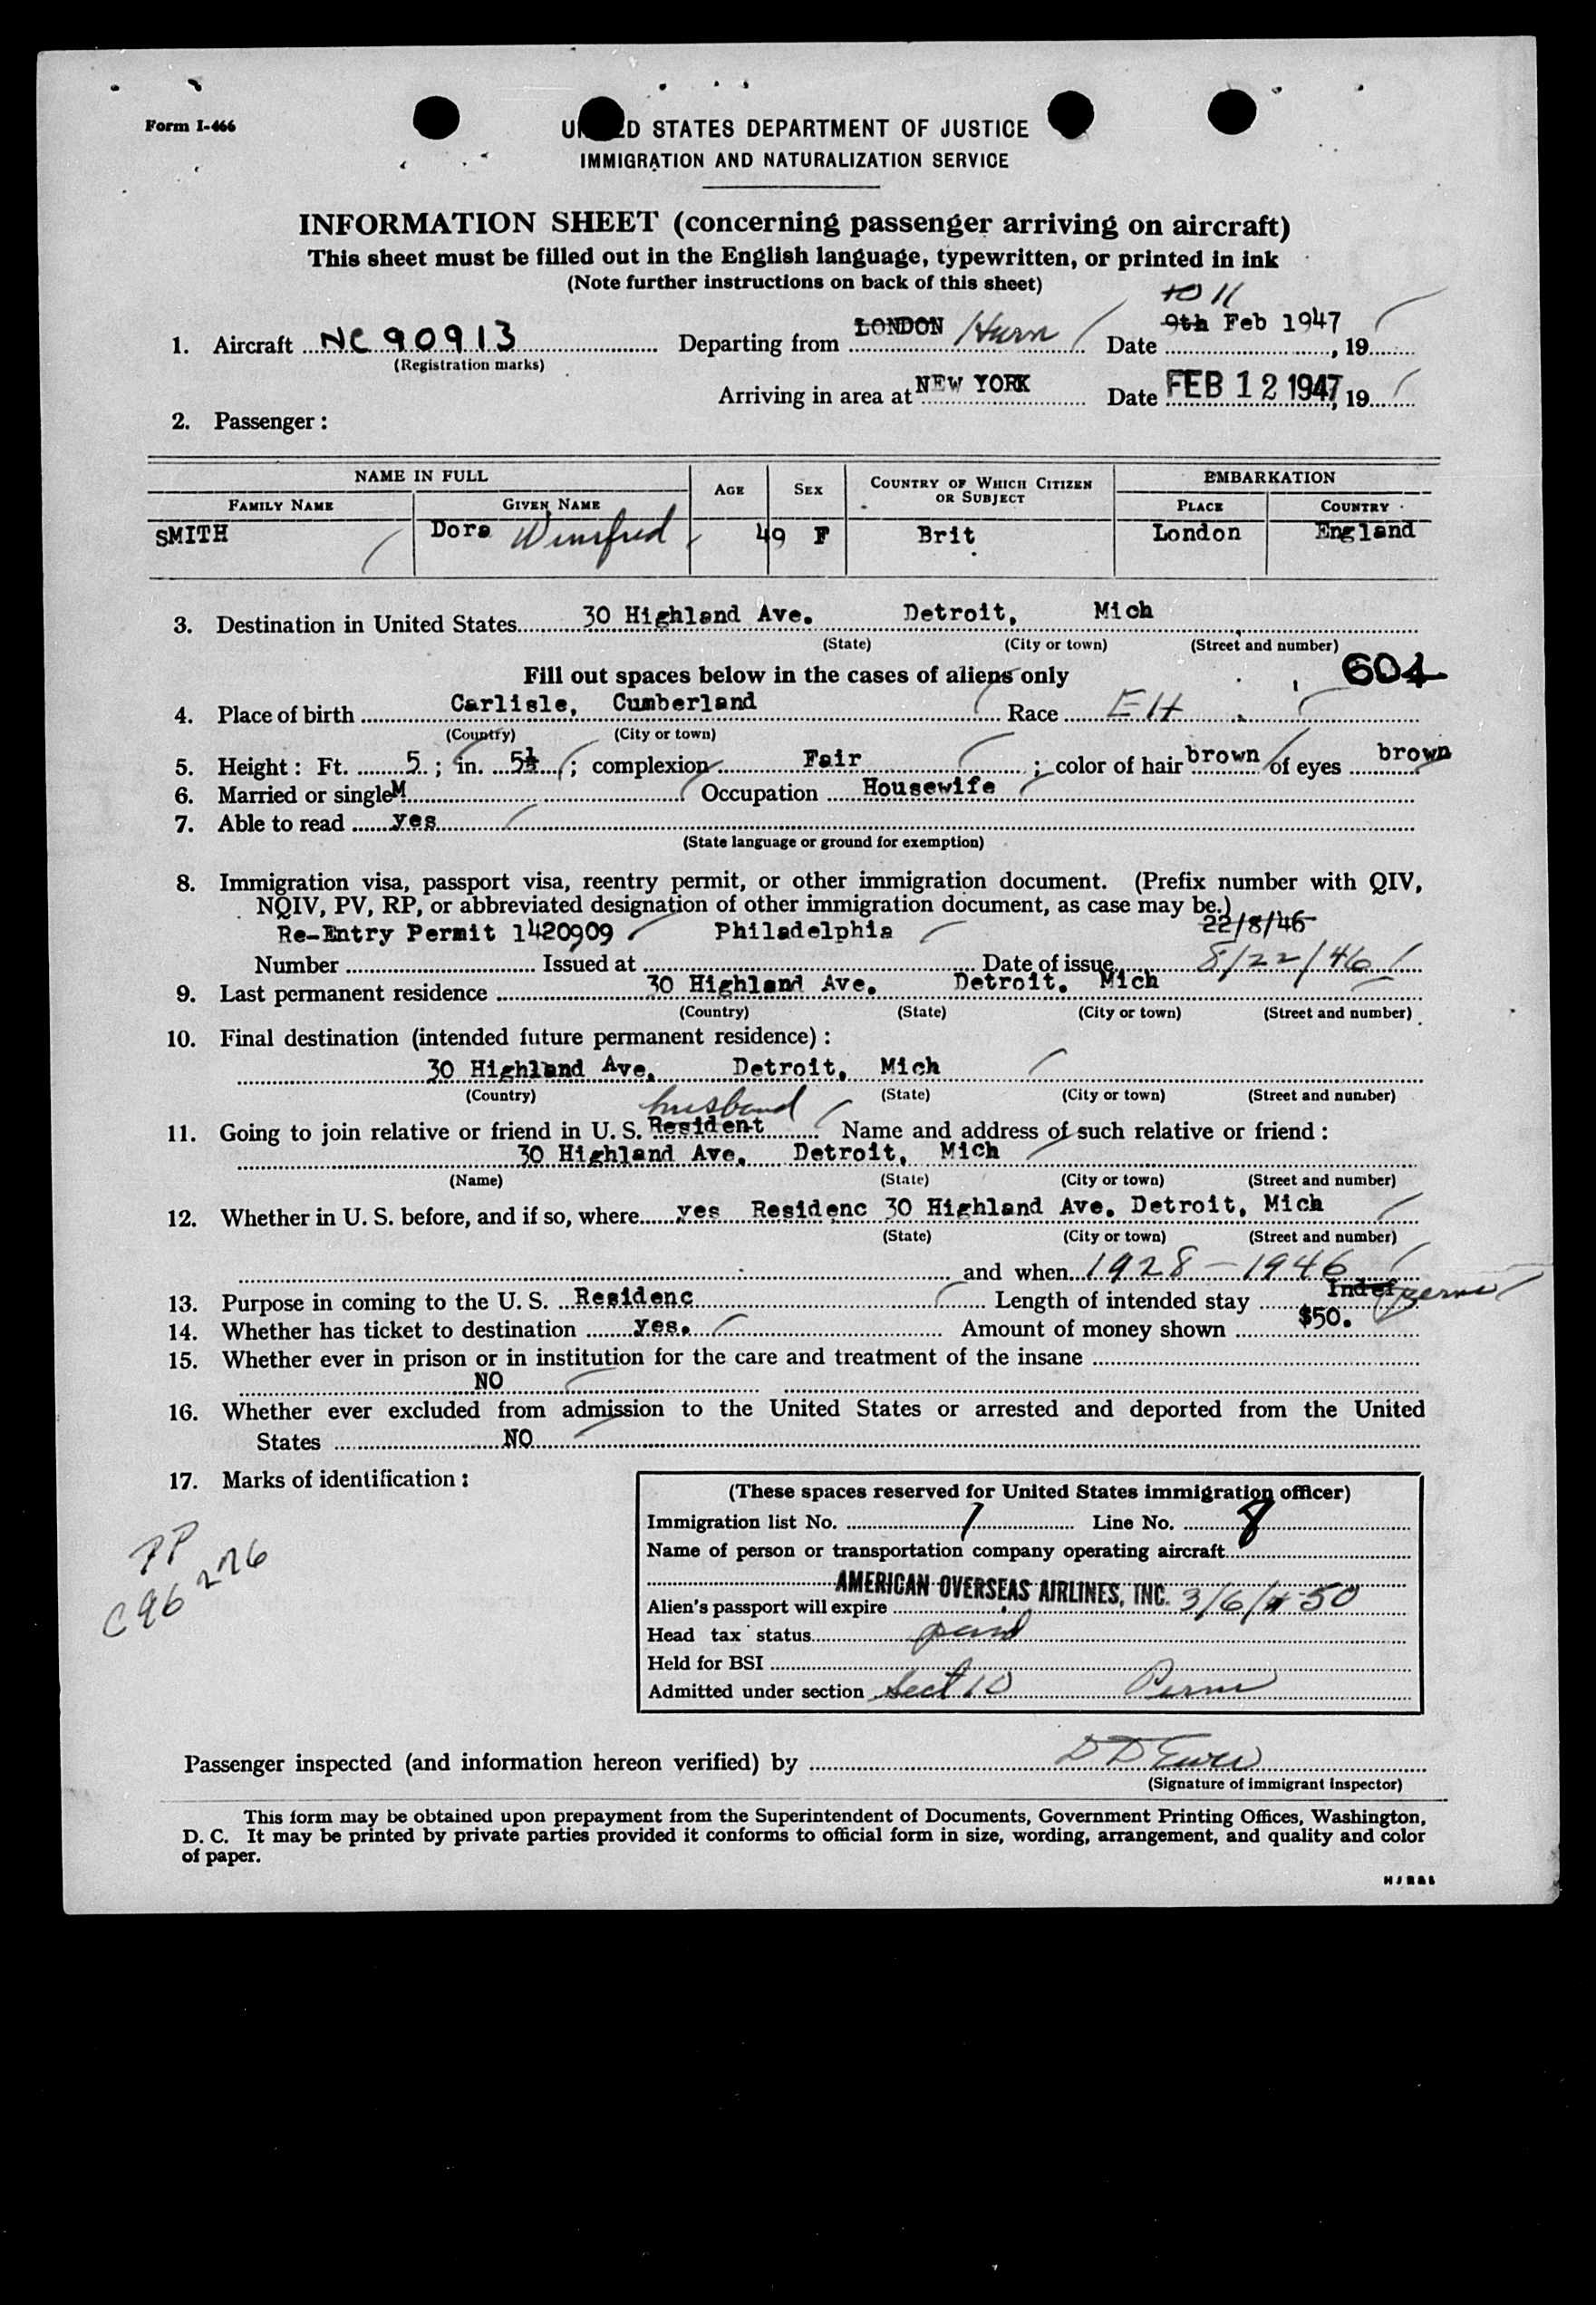 Form I-466
UNITED STATES DEPARTMENT OF JUSTICE
IMMIGRATION AND NATURALIZATION SERVICE
INFORMATION SHEET (concerning passenger arriving on aircraft)
This sheet must be filled out in the English language, typewritten, or printed in ink
(Note further instructions on back of this sheet)
10 11
1. Aircraft NC 90913 Departing from LONDON Hurn Date 9th Feb 1947, 19
(Registration marks)
Arriving in area at NEW YORK Date FEB 12 1947, 19
2. Passenger:
NAME IN FULL AGE SEX COUNTRY OF WHICH CITIZEN OR SUBJECT EMBARKATION
FAMILY NAME GIVEN NAME PLACE COUNTRY
SMITH Dora Winifred 49 F Brit London England
3. Destination in United States 30 Highland Ave. Detroit, Mich
(State) (City or town) (Street and number)
604
Fill out spaces below in the cases of aliens only
4. Place of birth Carlisle, Cumberland Race EH
(Country) (City or town)
5. Height: Ft. 5; in. 5½; complexion Fair; color of hair brown of eyes brown
6. Married or single M Occupation Housewife
7. Able to read yes
(State language or ground for exemption)
8. Immigration visa, passport visa, reentry permit, or other immigration document. (Prefix number with QIV,
NQIV, PV, RP, or abbreviated designation of other immigration document, as case may be.)
Re-Entry Permit 1420909 Philadelphia 22/8/46
Number Issued at Date of issue 8/22/46
9. Last permanent residence 30 Highland Ave. Detroit. Mich
(Country) (State) (City or town) (Street and number)
10. Final destination (intended future permanent residence):
30 Highland Ave. Detroit, Mich
(Country) (State) (City or town) (Street and number)
husband
11. Going to join relative or friend in U. S. Resident Name and address of such relative or friend:
30 Highland Ave. Detroit, Mich
(Name) (State) (City or town) (Street and number)
12. Whether in U. S. before, and if so, where yes Residenc 30 Highland Ave. Detroit, Mich
(State) (City or town) (Street and number)
and when 1928-1946
13. Purpose in coming to the U. S. Residenc Length of intended stay Indef Perm
14. Whether has ticket to destination yes. Amount of money shown $50.
15. Whether ever in prison or in institution for the care and treatment of the insane
NO
16. Whether ever excluded from admission to the United States or arrested and deported from the United
States NO
17. Marks of identification:
PP
C96276
(These spaces reserved for United States immigration officer)
Immigration list No. 1 Line No. 8
Name of person or transportation company operating aircraft
AMERICAN OVERSEAS AIRLINES, INC.
Alien's passport will expire 3/6/50
Head tax status
Held for BSI
Admitted under section Sect 10 Perm
Passenger inspected (and information hereon verified) by
(Signature of immigrant inspector)
This form may be obtained upon prepayment from the Superintendent of Documents, Government Printing Offices, Washington,
D. C. It may be printed by private parties provided it conforms to official form in size, wording, arrangement, and quality and color
of paper.